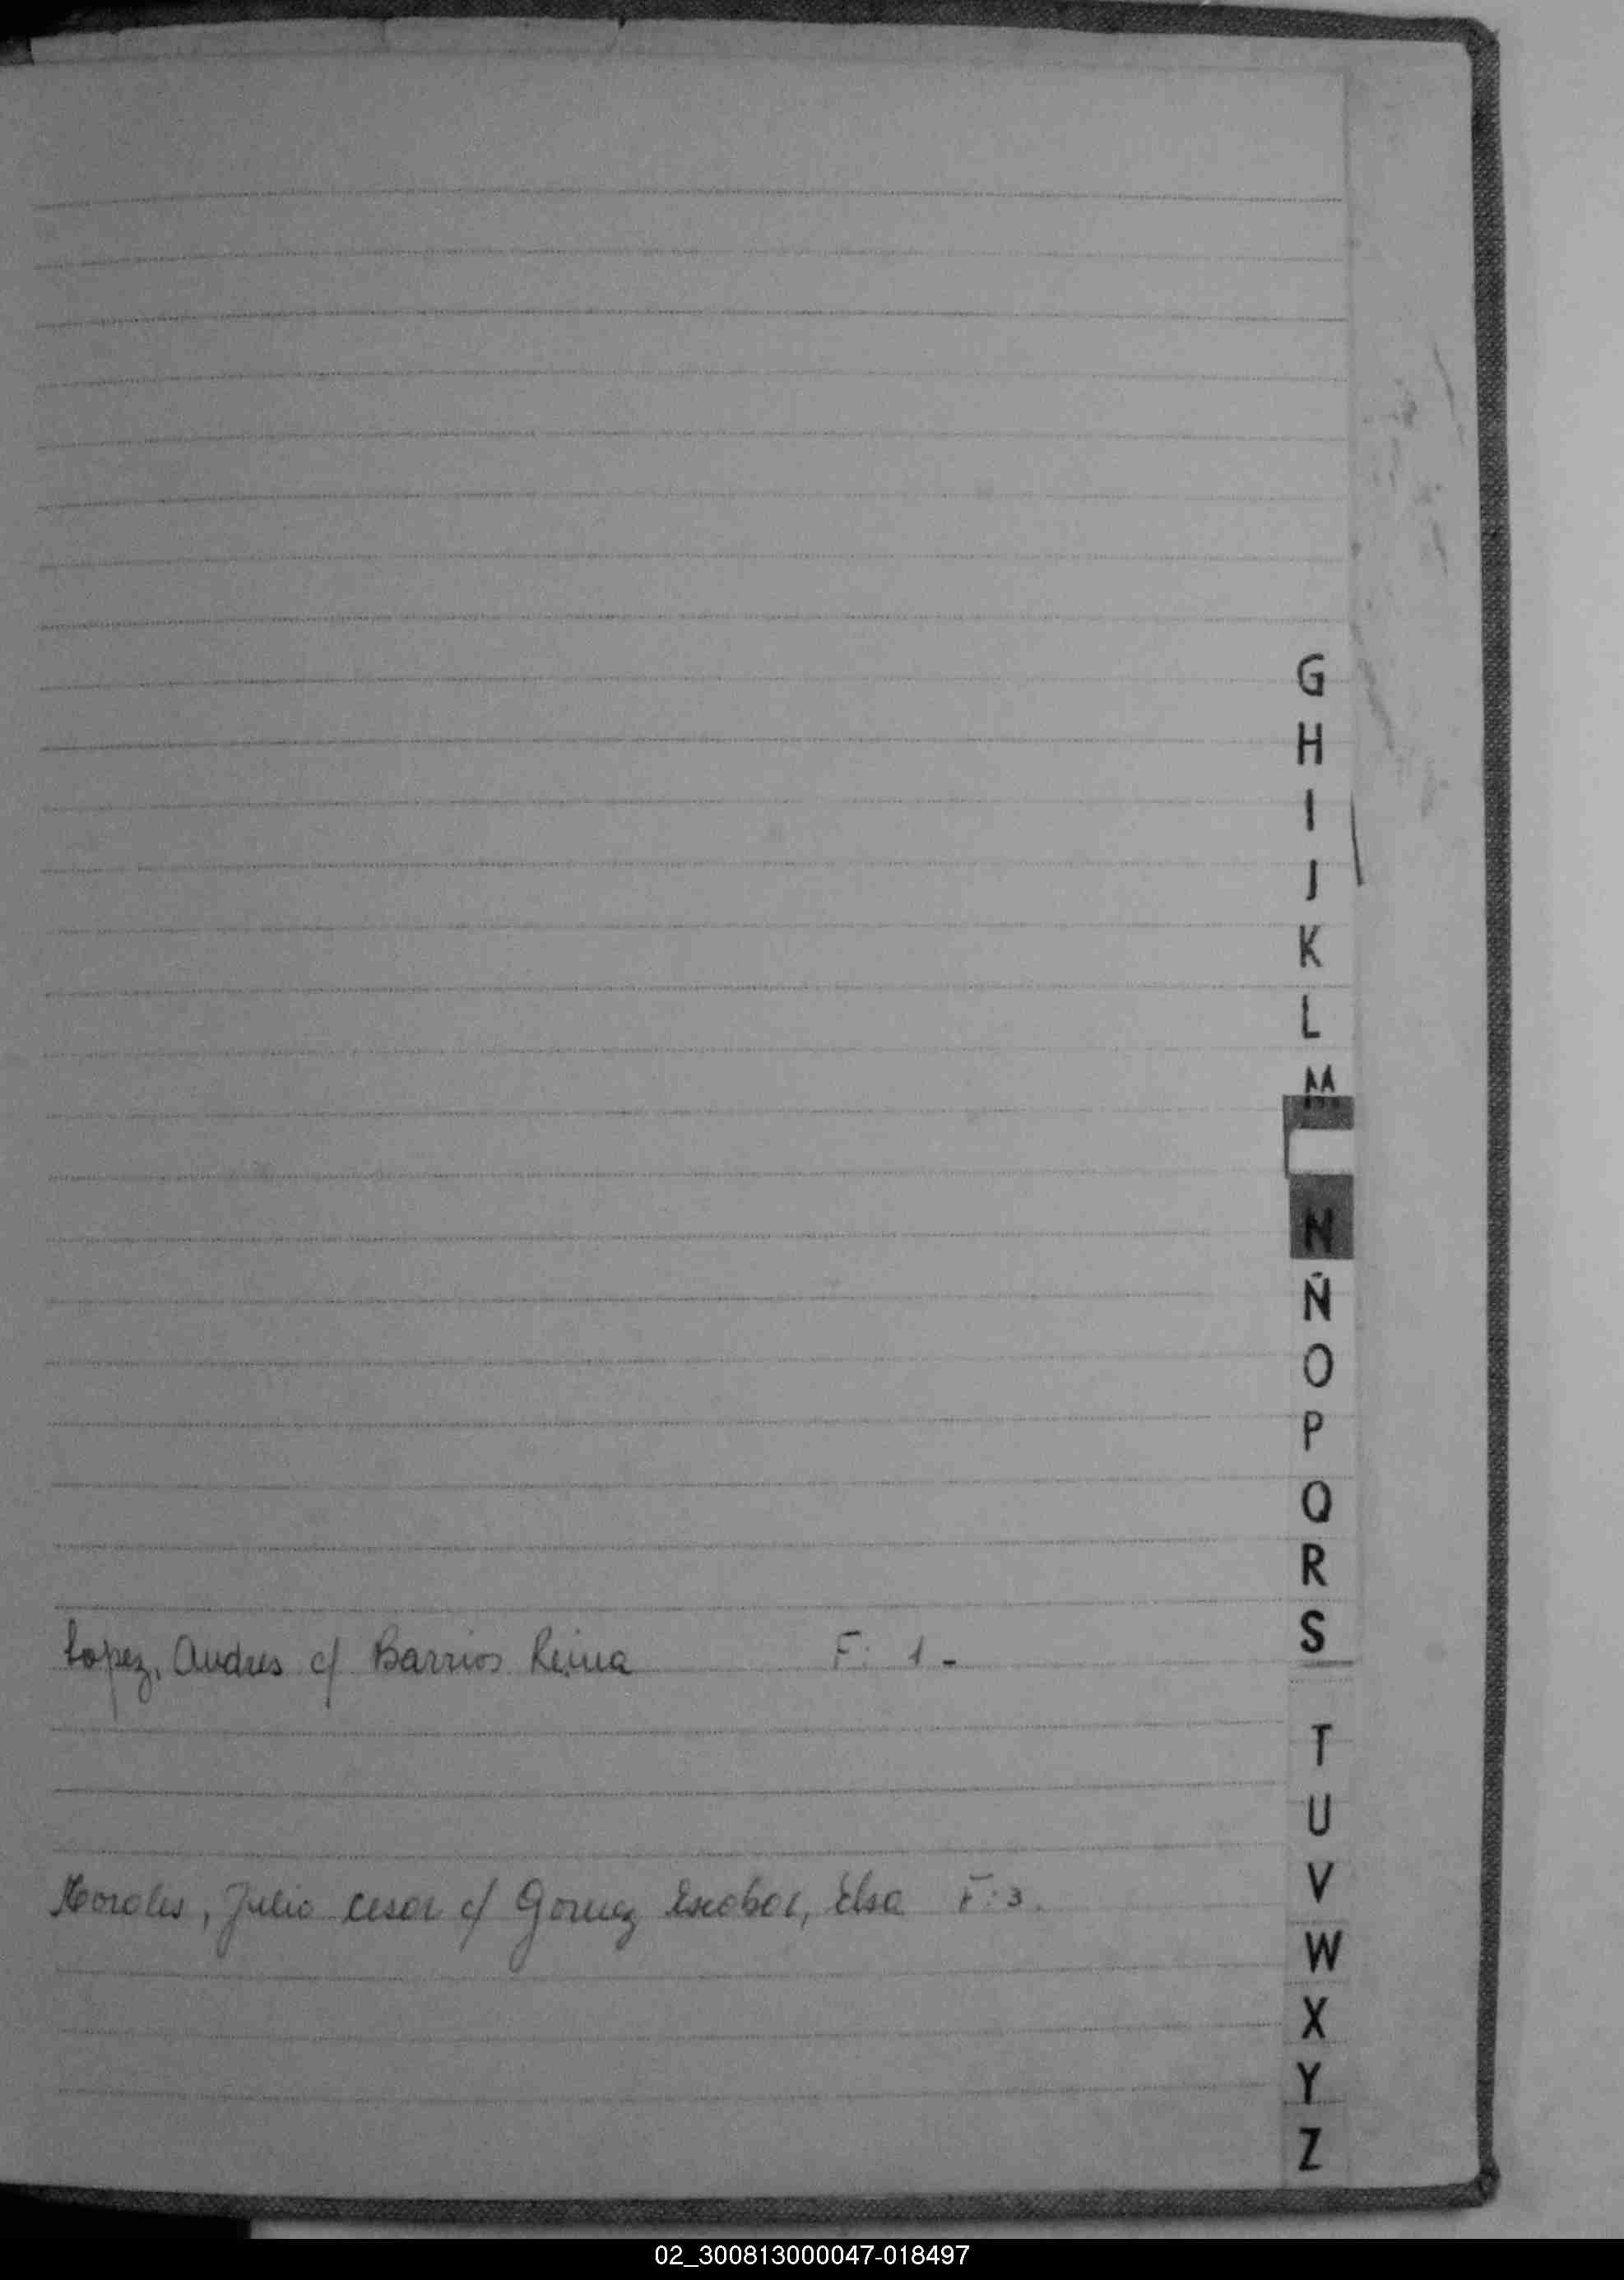 G
H
I
J
K
L
M
N
Ñ
O
P
Q
R
S
Lopez, Andres c/ Barrios Reina F: 1 -
T
U
V
Morales, Julio Cesar c/ Gomez Escobar, Elsa F: 3.
W
X
Y
Z
02_300813000047-018497